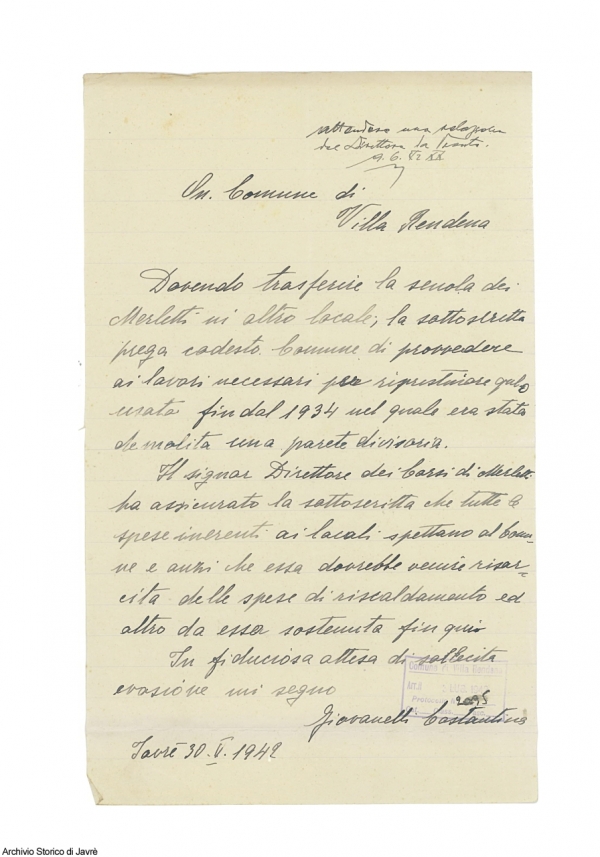 attendere una
del Direttore da Trento.
9. 6. VI XX
On. Comune di
Villa Rendena
Dovendo trasferire la scuola dei
Merletti in altro locale, la sottoscritta
prega codesto Comune di provvedere
ai lavori necessari per ripristinare quello
usato fin dal 1934 nel quale era stata
demolita una parete divisoria.
Il signor Direttore dei Corsi di Merletti
ha assicurato la sottoscritta che tutte le
spese inerenti ai locali spettano al Comu-
ne e anzi che essa dovrebbe venire risar-
cita delle spese di riscaldamento ed
altro da essa sostenuta fin qui.
In fiduciosa attesa di sollecita
evasione mi segno
Comune di Villa Rendena
2095
Giovanelli Costantina
Javrè 30. V. 1942
Archivio Storico di Javrè